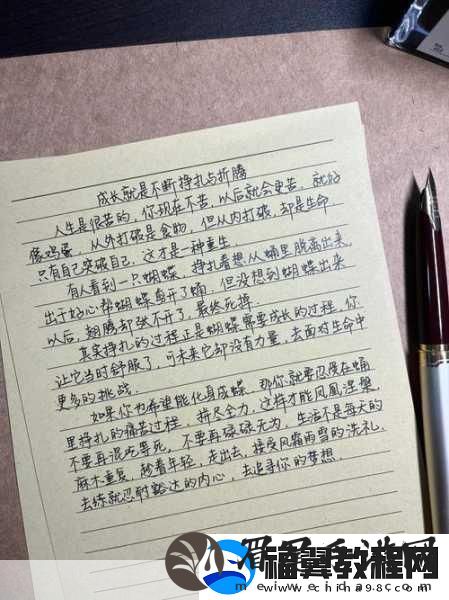 成长就是不断挣扎与折腾
人生是很苦的，你现在不苦，以后就会更苦．就好
像鸡蛋，从外打破是食物，但从内打破，却是生命
只有自己突破自己，这才是一种重生．
有人看到一只蝴蝶，挣扎着想从蛹里脱离出来，
出于好心帮蝴蝶剪开了蛹，但没想到蝴蝶出来
以后，翅膀却张不开了，最终死掉．
其实挣扎的过程正是蝴蝶需要成长的过程，你
让它当时舒服了，可未来它却没有力量，去面对生命中
更多的挑战．
如果你为希望能化身成蝶，那你就要忍受在蛹
里挣扎的痛苦过程，拼尽全力，这样才能凤凰涅槃．
不要再混吃等死，不要再碌碌无为，生活不是每天的
麻木重复，趁着年轻，走出去，接受风霜雨雪的洗礼，
去练就忍耐豁达的内心，去追寻你的梦想．
福翼教程网